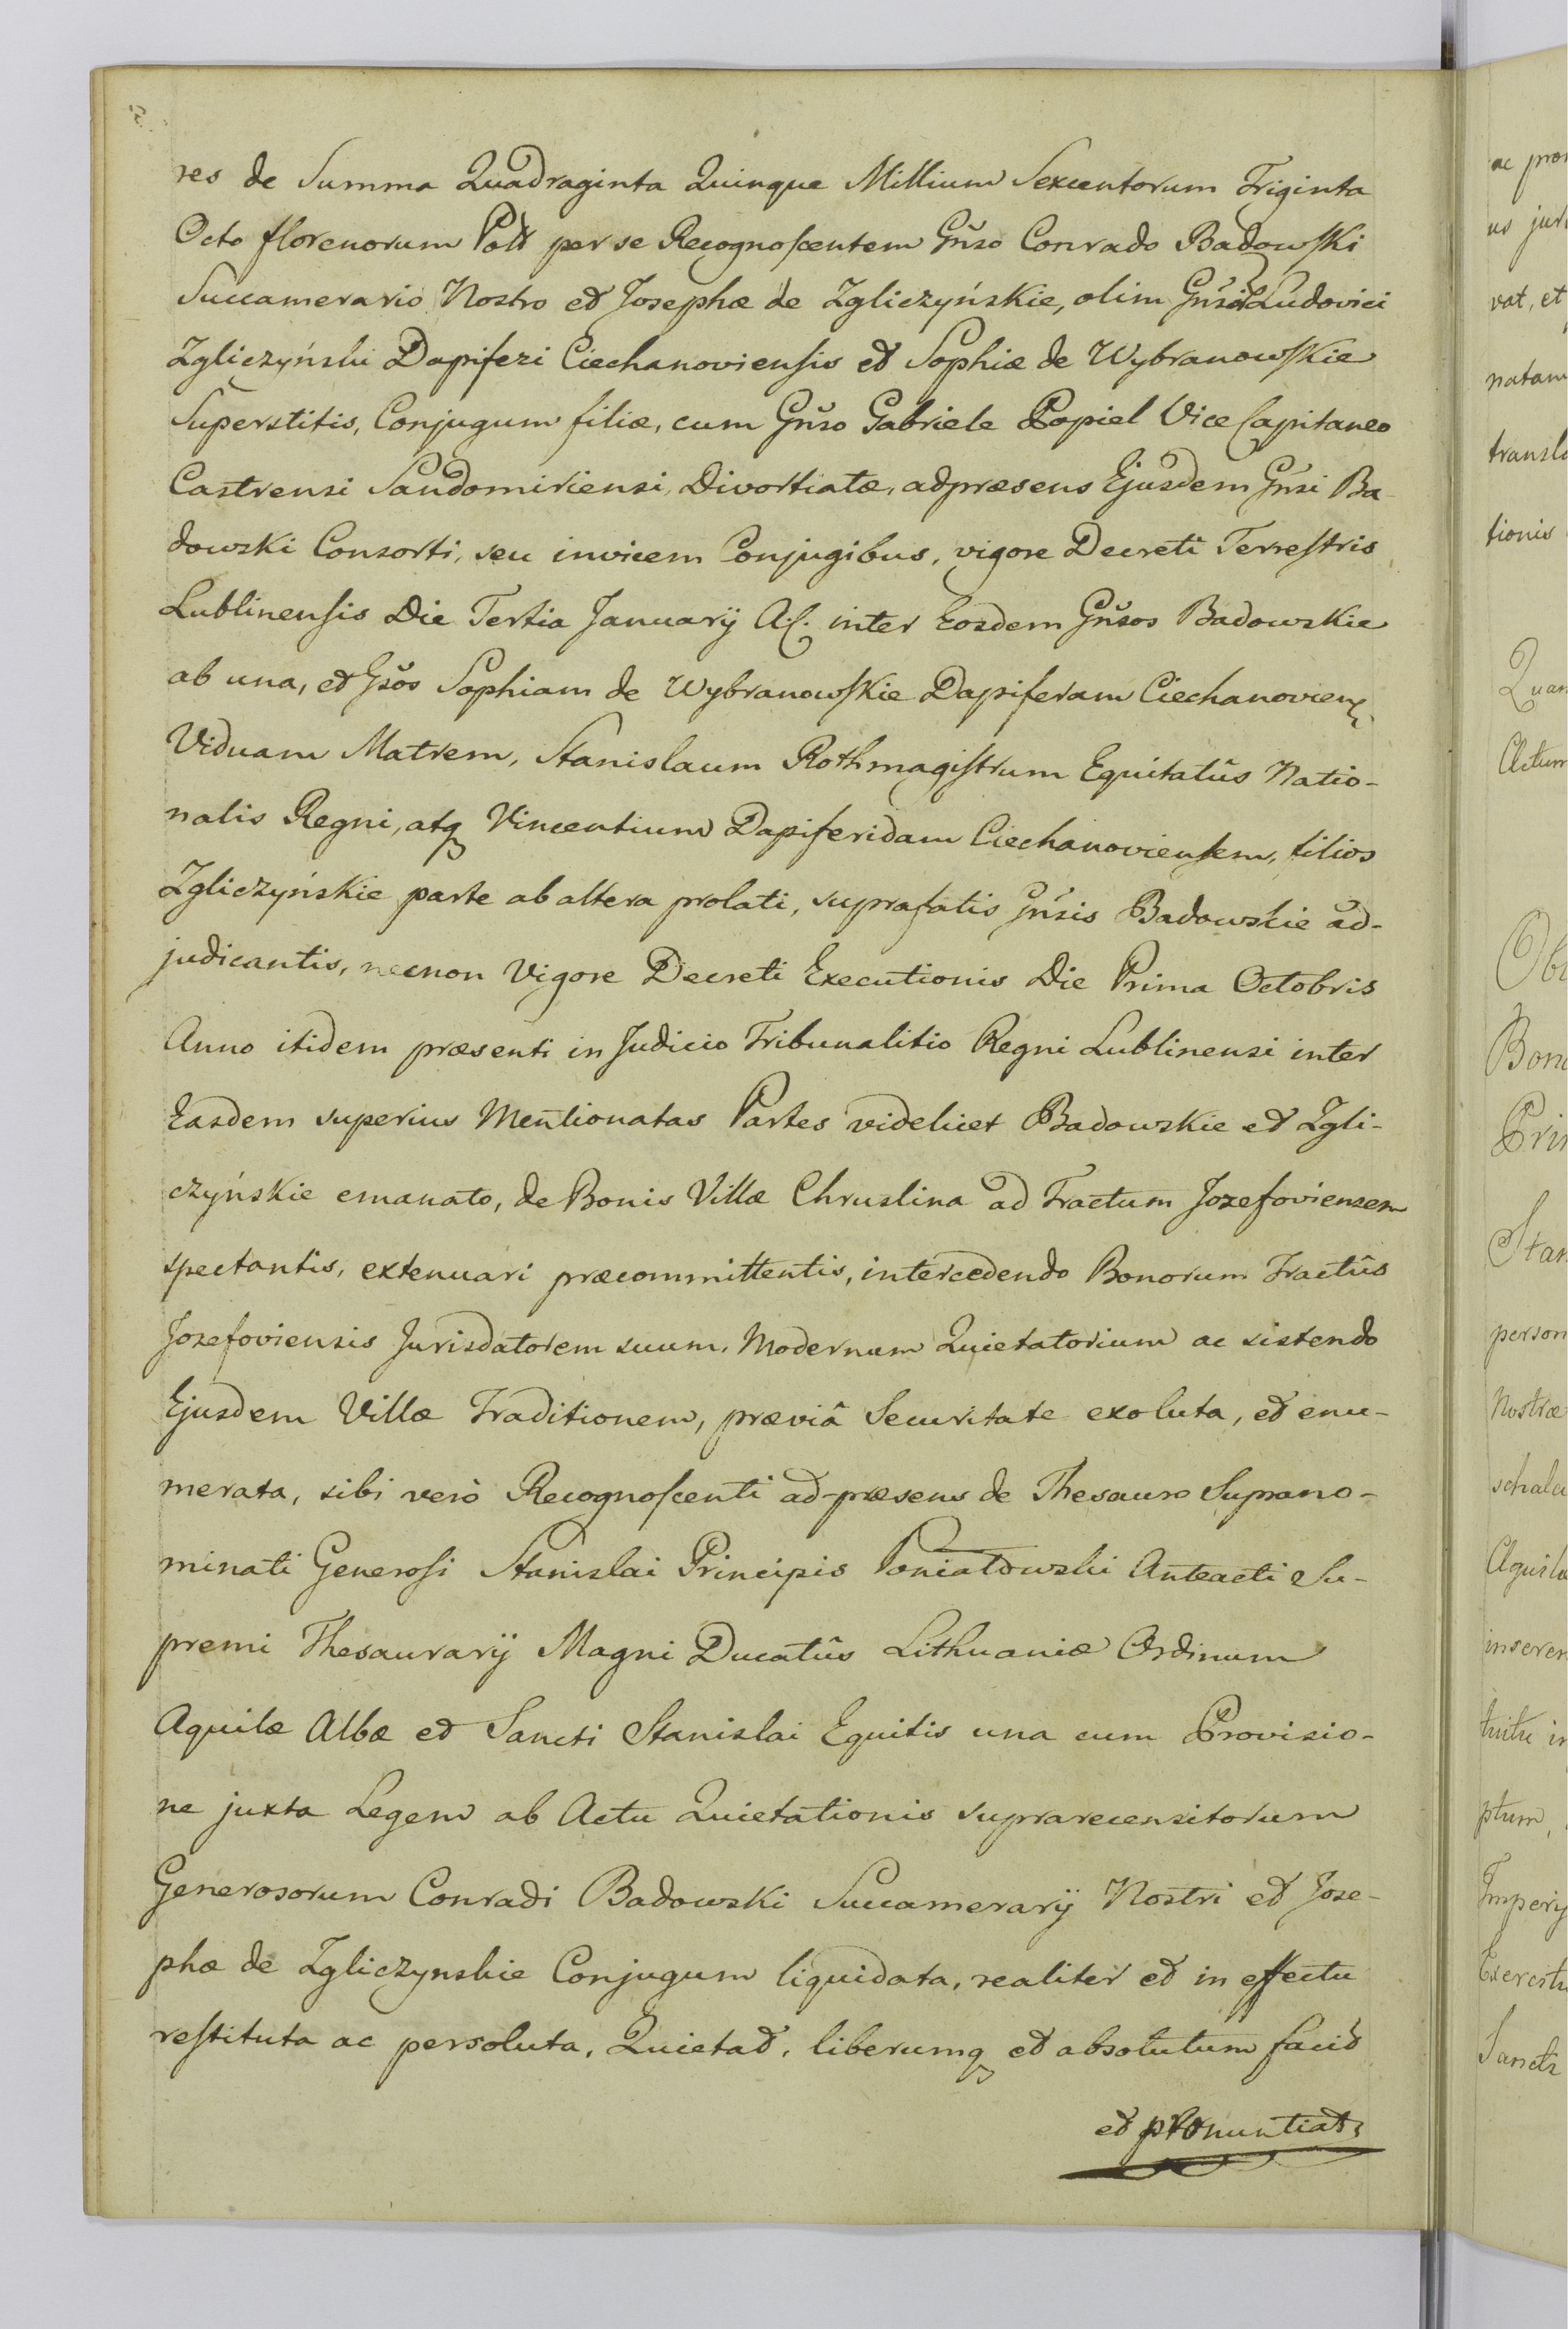 res de Summa Quadraginta Quinque Millium Sexcentorum Triginta
Octo florenorum Poll per se Recognoscentem Gnso Conrado Badowski
Succamerario Nostro et Josephæ de Zgliczyńskie, olim Gnsi Ludovici
Zgliczyński Dapiferi Ciechanoviensis et Sophiæ de Wybranowskie
Superstitis, Conjugum filiæ, cum Gnso Gabriele Popiel Vice Capitaneo
Castrensi Sandomiriensi, Divortiatæ, adpræsens Ejusdem Gnsi Ba-
dowski Consorti, seu invicem Conjugibus, vigore Decreti Terrestris
Lublinensis Die Tertia Januarij A.C. inter Eosdem Gnsos Badowskie
ab una, et Gsos Sophiam de Wybranowskie Dapiferam Ciechanovien,
Viduam Matrem, Stanislaum Rothmagistrum Equitatûs Natio-
nalis Regni, atq Vincentium Dapiferidam Ciechanoviensem, filios
Zgliczyńskie parte ab altera prolati, suprafatis Gnsis Badowskie ad-
judicantis, necnon Vigore Decreti Executionis Die Prima Octobris
Anno itidem præsenti in Judicio Tribunalitio Regni Lublinensi inter
Easdem superius Mentionatas Partes videlicet Badowskie et Zgli-
czyńskie emanato, de Bonis Villæ Chruslina ad Tractum Jozefoviensem
spectantis, extenuari præcommittentis, intercedendo Bonorum Tractûs
Jozefoviensis Jurisdatorem suum, Modernum Quietatorium ac sistendo
Ejusdem Villæ Traditionem, præviâ Securitate exoluta, et enu-
merata, sibi verò Recognoscenti ad-præsens de Thesauro Suprano-
minati Generosi Stanislai Principis Poniatowski Anteacti Su-
premi Thesaurarij Magni Ducatûs Lithuaniæ Ordinum
Aquilæ Albæ et Sancti Stanislai Equitis una cum Provisio-
ne juxta Legem ab Actu Quietationis suprarecensitorum
Generosorum Conradi Badowski Succamerarij Nostri et Jose-
phæ de Zgliczynskie Conjugum liquidata, realiter et in effectu
restituta ac persoluta, Quietat, liberumq et absolutum facit
et pronuntiat,
ac
us
vat, et
natam
transla
tionis
Quan
Actum
Bon
Pri
Stan
person
Nostræ
schale
Aquilæ
inseren
tuitu in
ptum,
Imperij
Exercitu
Sancti